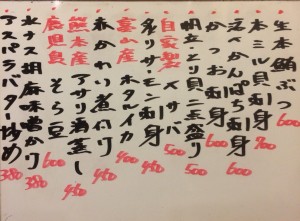 生本鮪ぶつ 600
本ミル貝刺身 900
活〆かんぱち刺身 600
かつお刺身 600
明石とり貝二点盛り 500
自家製〆サバ 500
炙りサーモン刺身 450
富山産ホタルイカ 400
赤かれい煮付け 450
熊本産アサリ酒蒸し 450
鹿児島そら豆 600
水ナス胡麻味噌かけ 380
アスパラバター炒め 380